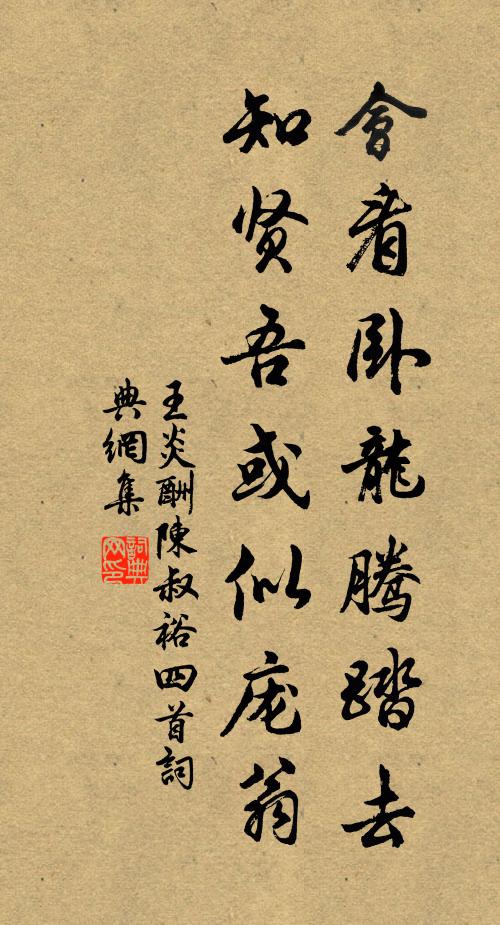 會看卧龍腾踏去
知贤吾或似庞翁
王炎酬陳叔裕四首詞
典網集
詞典
网印